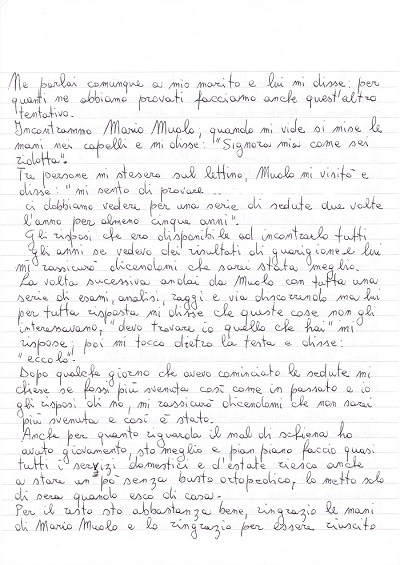 Ne parlai comunque a mio marito e lui mi disse: per
quanti ne abbiamo provati facciamo anche quest'altro
tentativo.
Incontrammo Mario Muolo, quando mi vide si mise le
mani nei capelli e mi disse: "Signora mia come sei
ridotta".
Tre persone mi stesero sul lettino, Muolo mi visitò e
disse: "mi sento di provare...
ci dobbiamo vedere per una serie di sedute due volte
l'anno per almeno cinque anni".
Gli risposi che ero disponibile ad incontrarlo tutti
gli anni se vedevo dei risultati di guarigione e lui
mi rassicurò dicendomi che sarei stata meglio.
La volta sucessiva andai da Muolo con tutta una
serie di esami, analisi, raggi e via discorrendo ma lui
per tutta risposta mi disse che queste cose non gli
interessavano, "devo trovare io quello che hai" mi
rispose; poi mi toccò dietro la testa e disse:
"eccolo".
Dopo qualche giorno che avevo cominciato le sedute mi
chiese se fossi più svenuta così come in passato e io
gli risposi di no, mi rassicurò dicendomi che non sarei
più svenuta e così è stato.
Anche per quanto riguarda il mal di schiena ho
avuto giovamento, sto meglio e pian piano faccio quasi
tutti i servizi domestici e d'estate riesco anche
a stare un pò senza busto ortopedico, lo metto solo
di sera quando esco di casa.
Per il resto sto abbastanza bene, ringrazio le mani
di Mario Muolo e lo ringrazio per essere riuscito